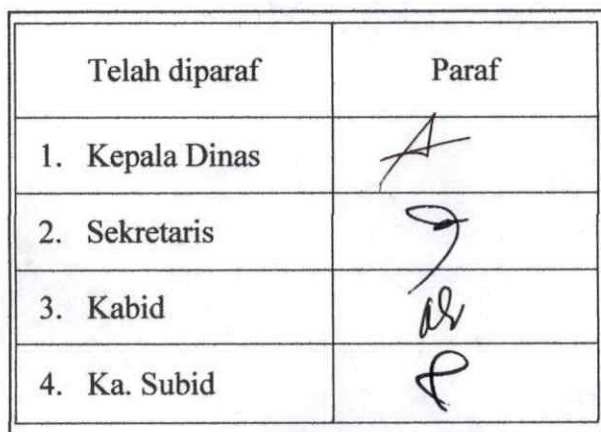 Telah diparaf Paraf
1. Kepala Dinas
2. Sekretaris
3. Kabid
4. Ka. Subid